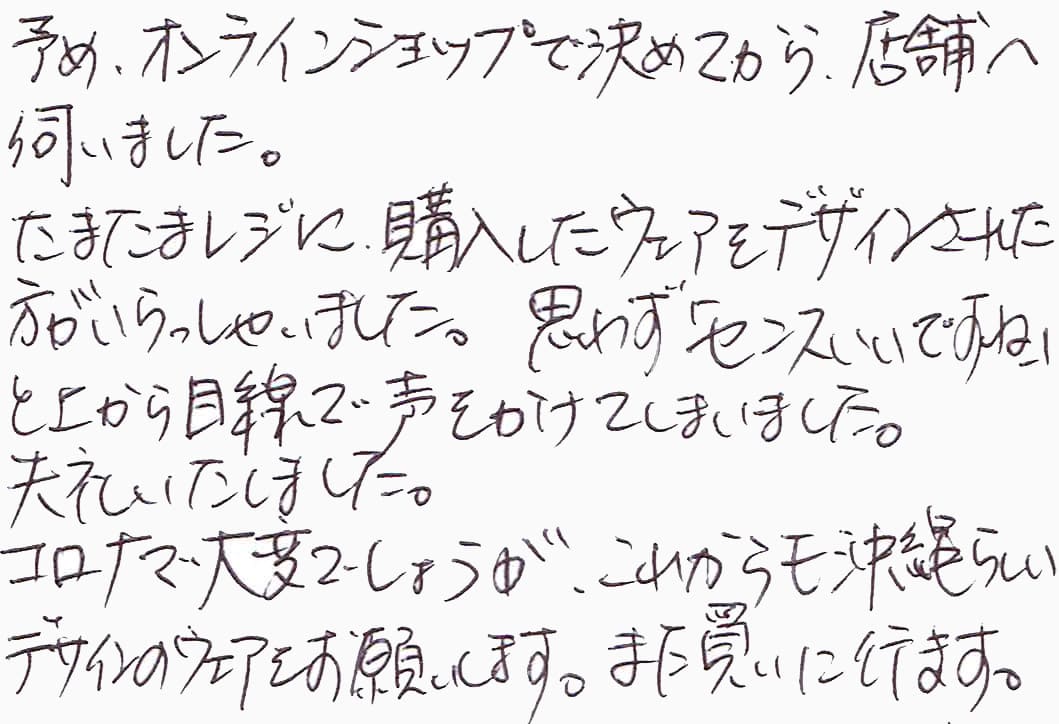 予め、オンラインショップで決めてから、店舗へ
伺いました。
たまたまレジに、購入したウェアをデザインされた
方がいらっしゃいました。思わず「センスいいですね」
と上から目線で声をかけてしまいました。
失礼いたしました。
コロナで大変でしょうが、これからも沖縄らしい
デザインのウェアをお願いします。また買いに行きます。